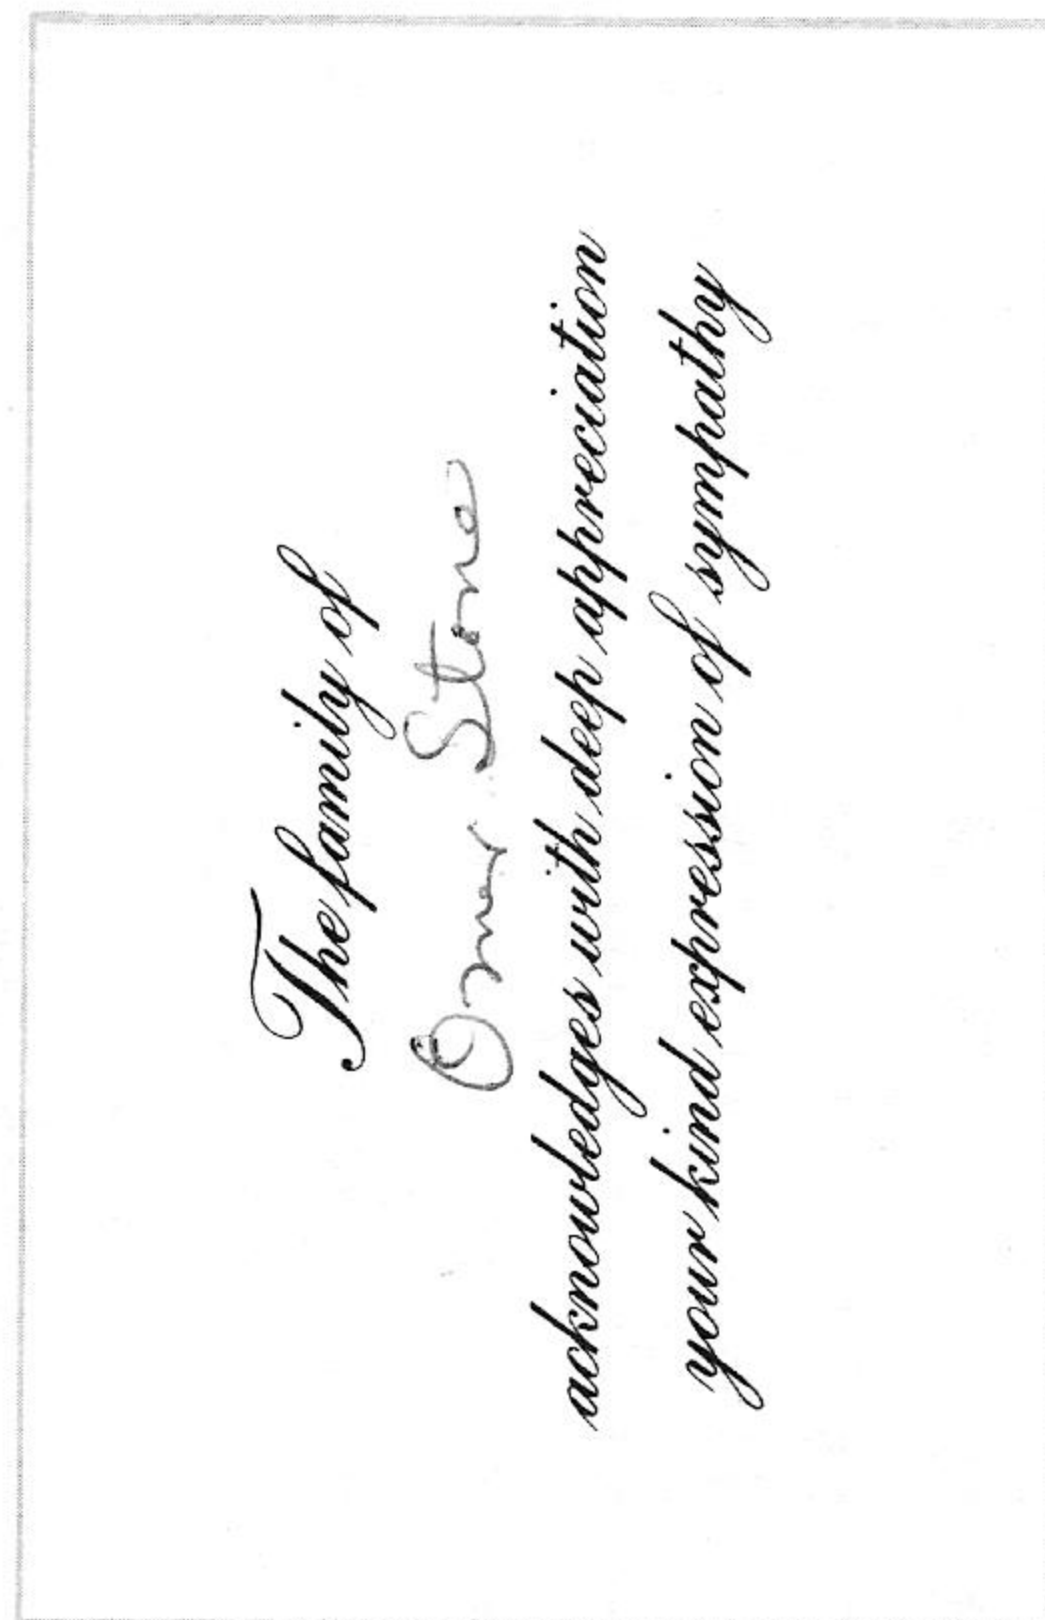 The family of
Omer Stone
acknowledges with deep appreciation
your kind expression of sympathy